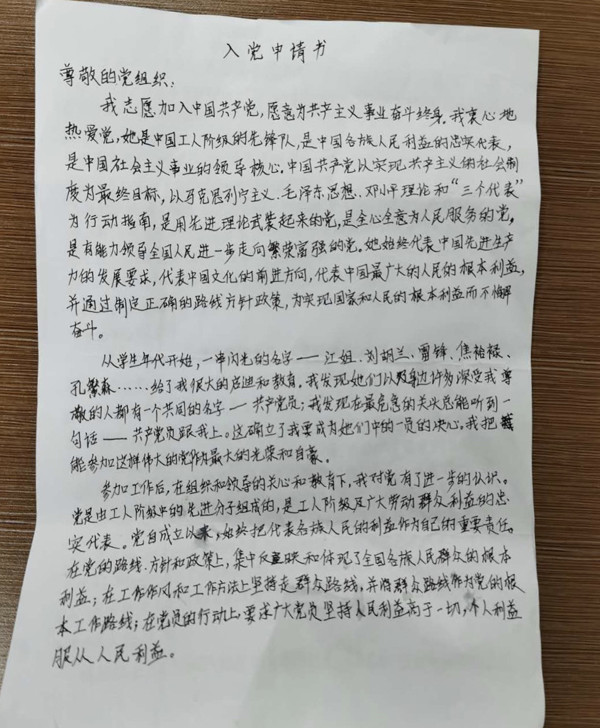 入党申请书
尊敬的党组织：
我志愿加入中国共产党，愿意为共产主义事业奋斗终身。我衷心地
热爱党，她是中国工人阶级的先锋队，是中国各族人民利益的忠实代表，
是中国社会主义事业的领导核心。中国共产党以实现共产主义的社会制
度为最终目标，以马克思列宁主义、毛泽东思想、邓小平理论和“三个代表”
为行动指南，是用先进理论武装起来的党，是全心全意为人民服务的党，
是有能力领导全国人民进一步走向繁荣富强的党。她始终代表中国先进生产
力的发展要求，代表中国文化的前进方向，代表中国最广大的人民的根本利益，
并通过制定正确的路线方针政策，为实现国家和人民的根本利益而不懈
奋斗。
从学生年代开始，一串闪光的名字——江姐、刘胡兰、雷锋、焦裕禄、
孔繁森……给了我很大的启迪和教育。我发现她们以及身边许多深受我尊
敬的人都有一个共同的名字——共产党员；我发现在最危急的关头总能听到一
句话——共产党员跟我上。这确立了我要成为她们中的一员的决心。我把
能参加这样伟大的党作为最大的光荣和自豪。
参加工作后，在组织和领导的关心和教育下，我对党有了进一步的认识。
党是由工人阶级中的先进分子组成的，是工人阶级及广大劳动群众利益的忠
实代表。党自成立以来，始终把代表各族人民的利益作为自己的重要责任。
在党的路线、方针和政策上，集中反映和体现了全国各族人民群众的根本
利益；在工作作风和工作方法上坚持走群众路线，并将群众路线作为党的根
本工作路线；在党员的行动上，要求广大党员坚持人民利益高于一切，个人利益
服从人民利益。